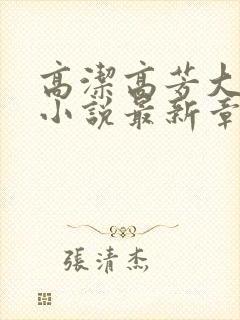 高潔高芳大
小說最新章
張清杰